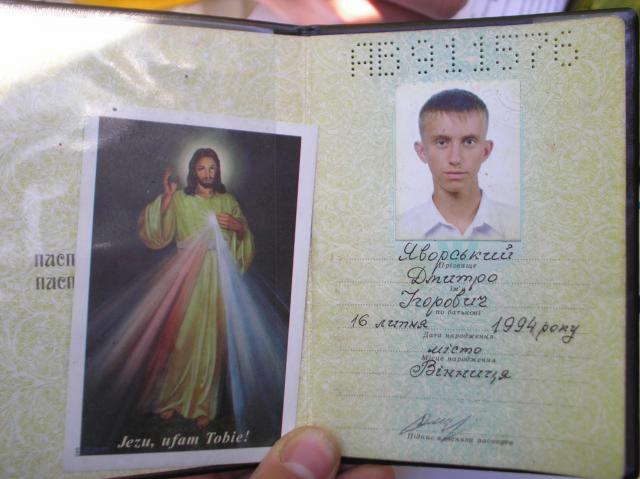 пасп
пасп
Jezu, ufam Tobie!
АВ 911576
Яворський
Прізвище
Дмитро
ім'я
Ігорович
по батькові
16 липня 1994 року
Дата народження
місто
Місце народження
Вінниця
Підпис власника паспорта